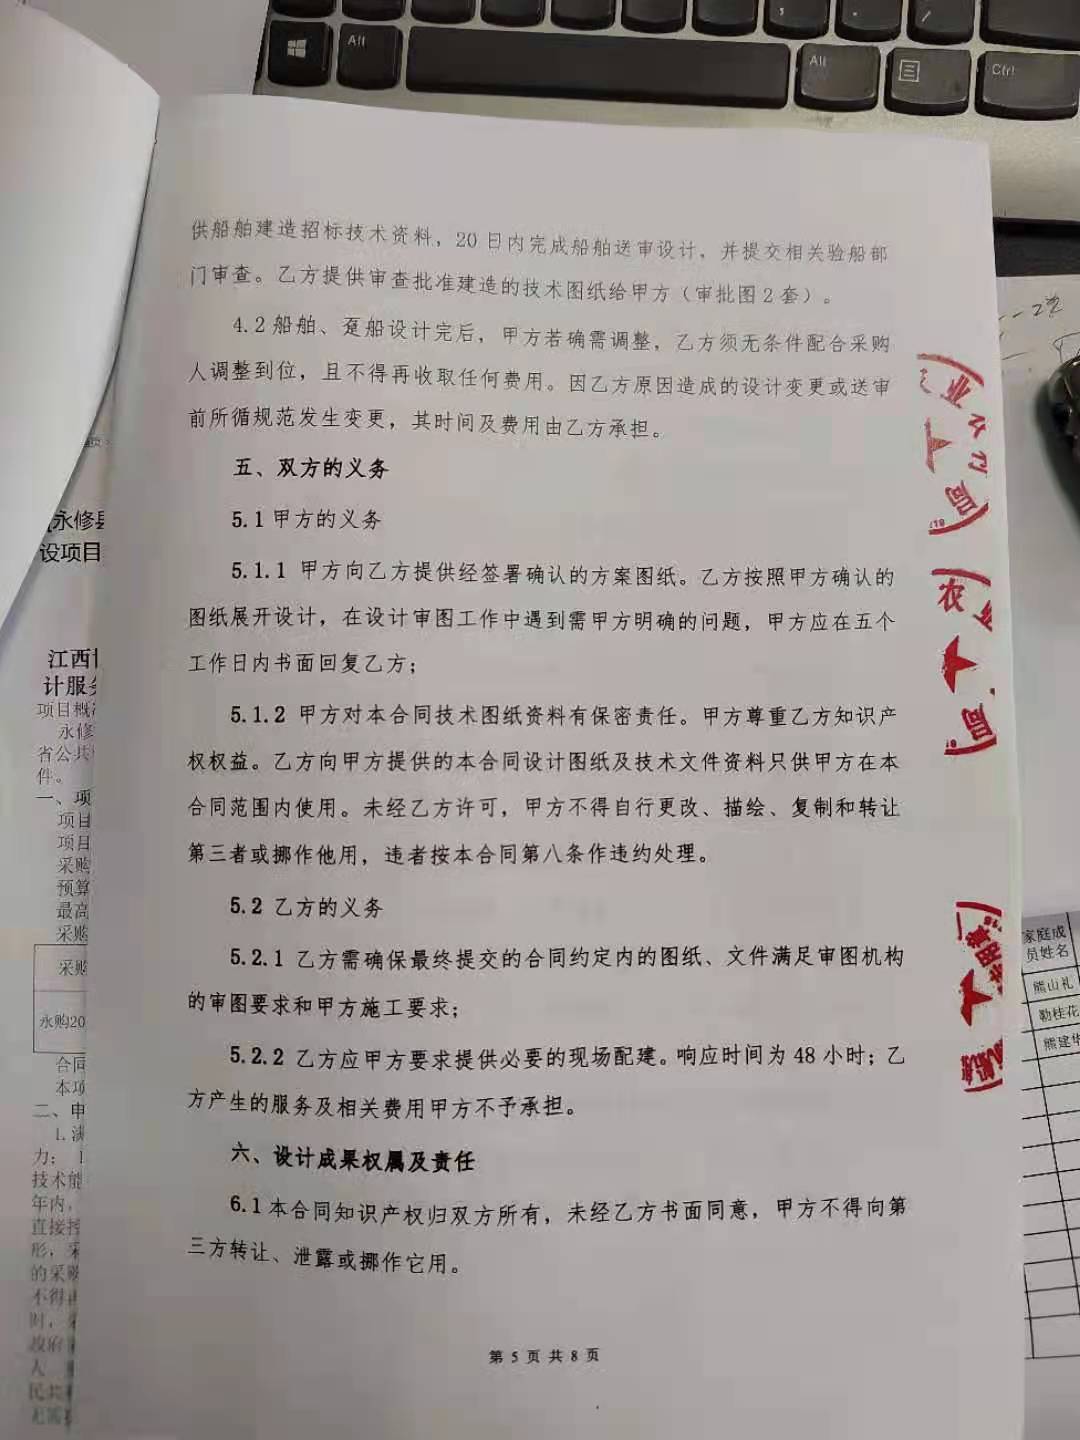 Alt
Alt
Ctrl
供船舶建造招标技术资料，20日内完成船舶送审设计，并提交相关验船部
门审查。乙方提供审查批准建造的技术图纸给甲方（审批图2套）。
4.2船舶、趸船设计完后，甲方若确需调整，乙方须无条件配合采购
人调整到位，且不得再收取任何费用。因乙方原因造成的设计变更或送审
前所循规范发生变更，其时间及费用由乙方承担。
五、双方的义务
5.1甲方的义务
5.1.1 甲方向乙方提供经签署确认的方案图纸。乙方按照甲方确认的
图纸展开设计，在设计审图工作中遇到需甲方明确的问题，甲方应在五个
工作日内书面回复乙方；
5.1.2 甲方对本合同技术图纸资料有保密责任。甲方尊重乙方知识产
权权益。乙方向甲方提供的本合同设计图纸及技术文件资料只供甲方在本
合同范围内使用。未经乙方许可，甲方不得自行更改、描绘、复制和转让
第三者或挪作他用，违者按本合同第八条作违约处理。
5.2 乙方的义务
5.2.1 乙方需确保最终提交的合同约定内的图纸、文件满足审图机构
的审图要求和甲方施工要求；
5.2.2 乙方应甲方要求提供必要的现场配建。响应时间为48小时；乙
方产生的服务及相关费用甲方不予承担。
六、设计成果权属及责任
6.1本合同知识产权归双方所有，未经乙方书面同意，甲方不得向第
三方转让、泄露或挪作它用。
第 5 页 共 8 页
业
局
农
局
永修县
设项目
江西
计服务
项目概
永修
省公共
件。
一、项
项目
项目
采购
预算
最高
采购
采购
永购20
合同
本项
二、申
1.满
力；
技术能
年内，
直接控
形，采
的采购
不得
时，
政府
人
民共
家庭成
员姓名
熊山礼
勒桂花
熊建华